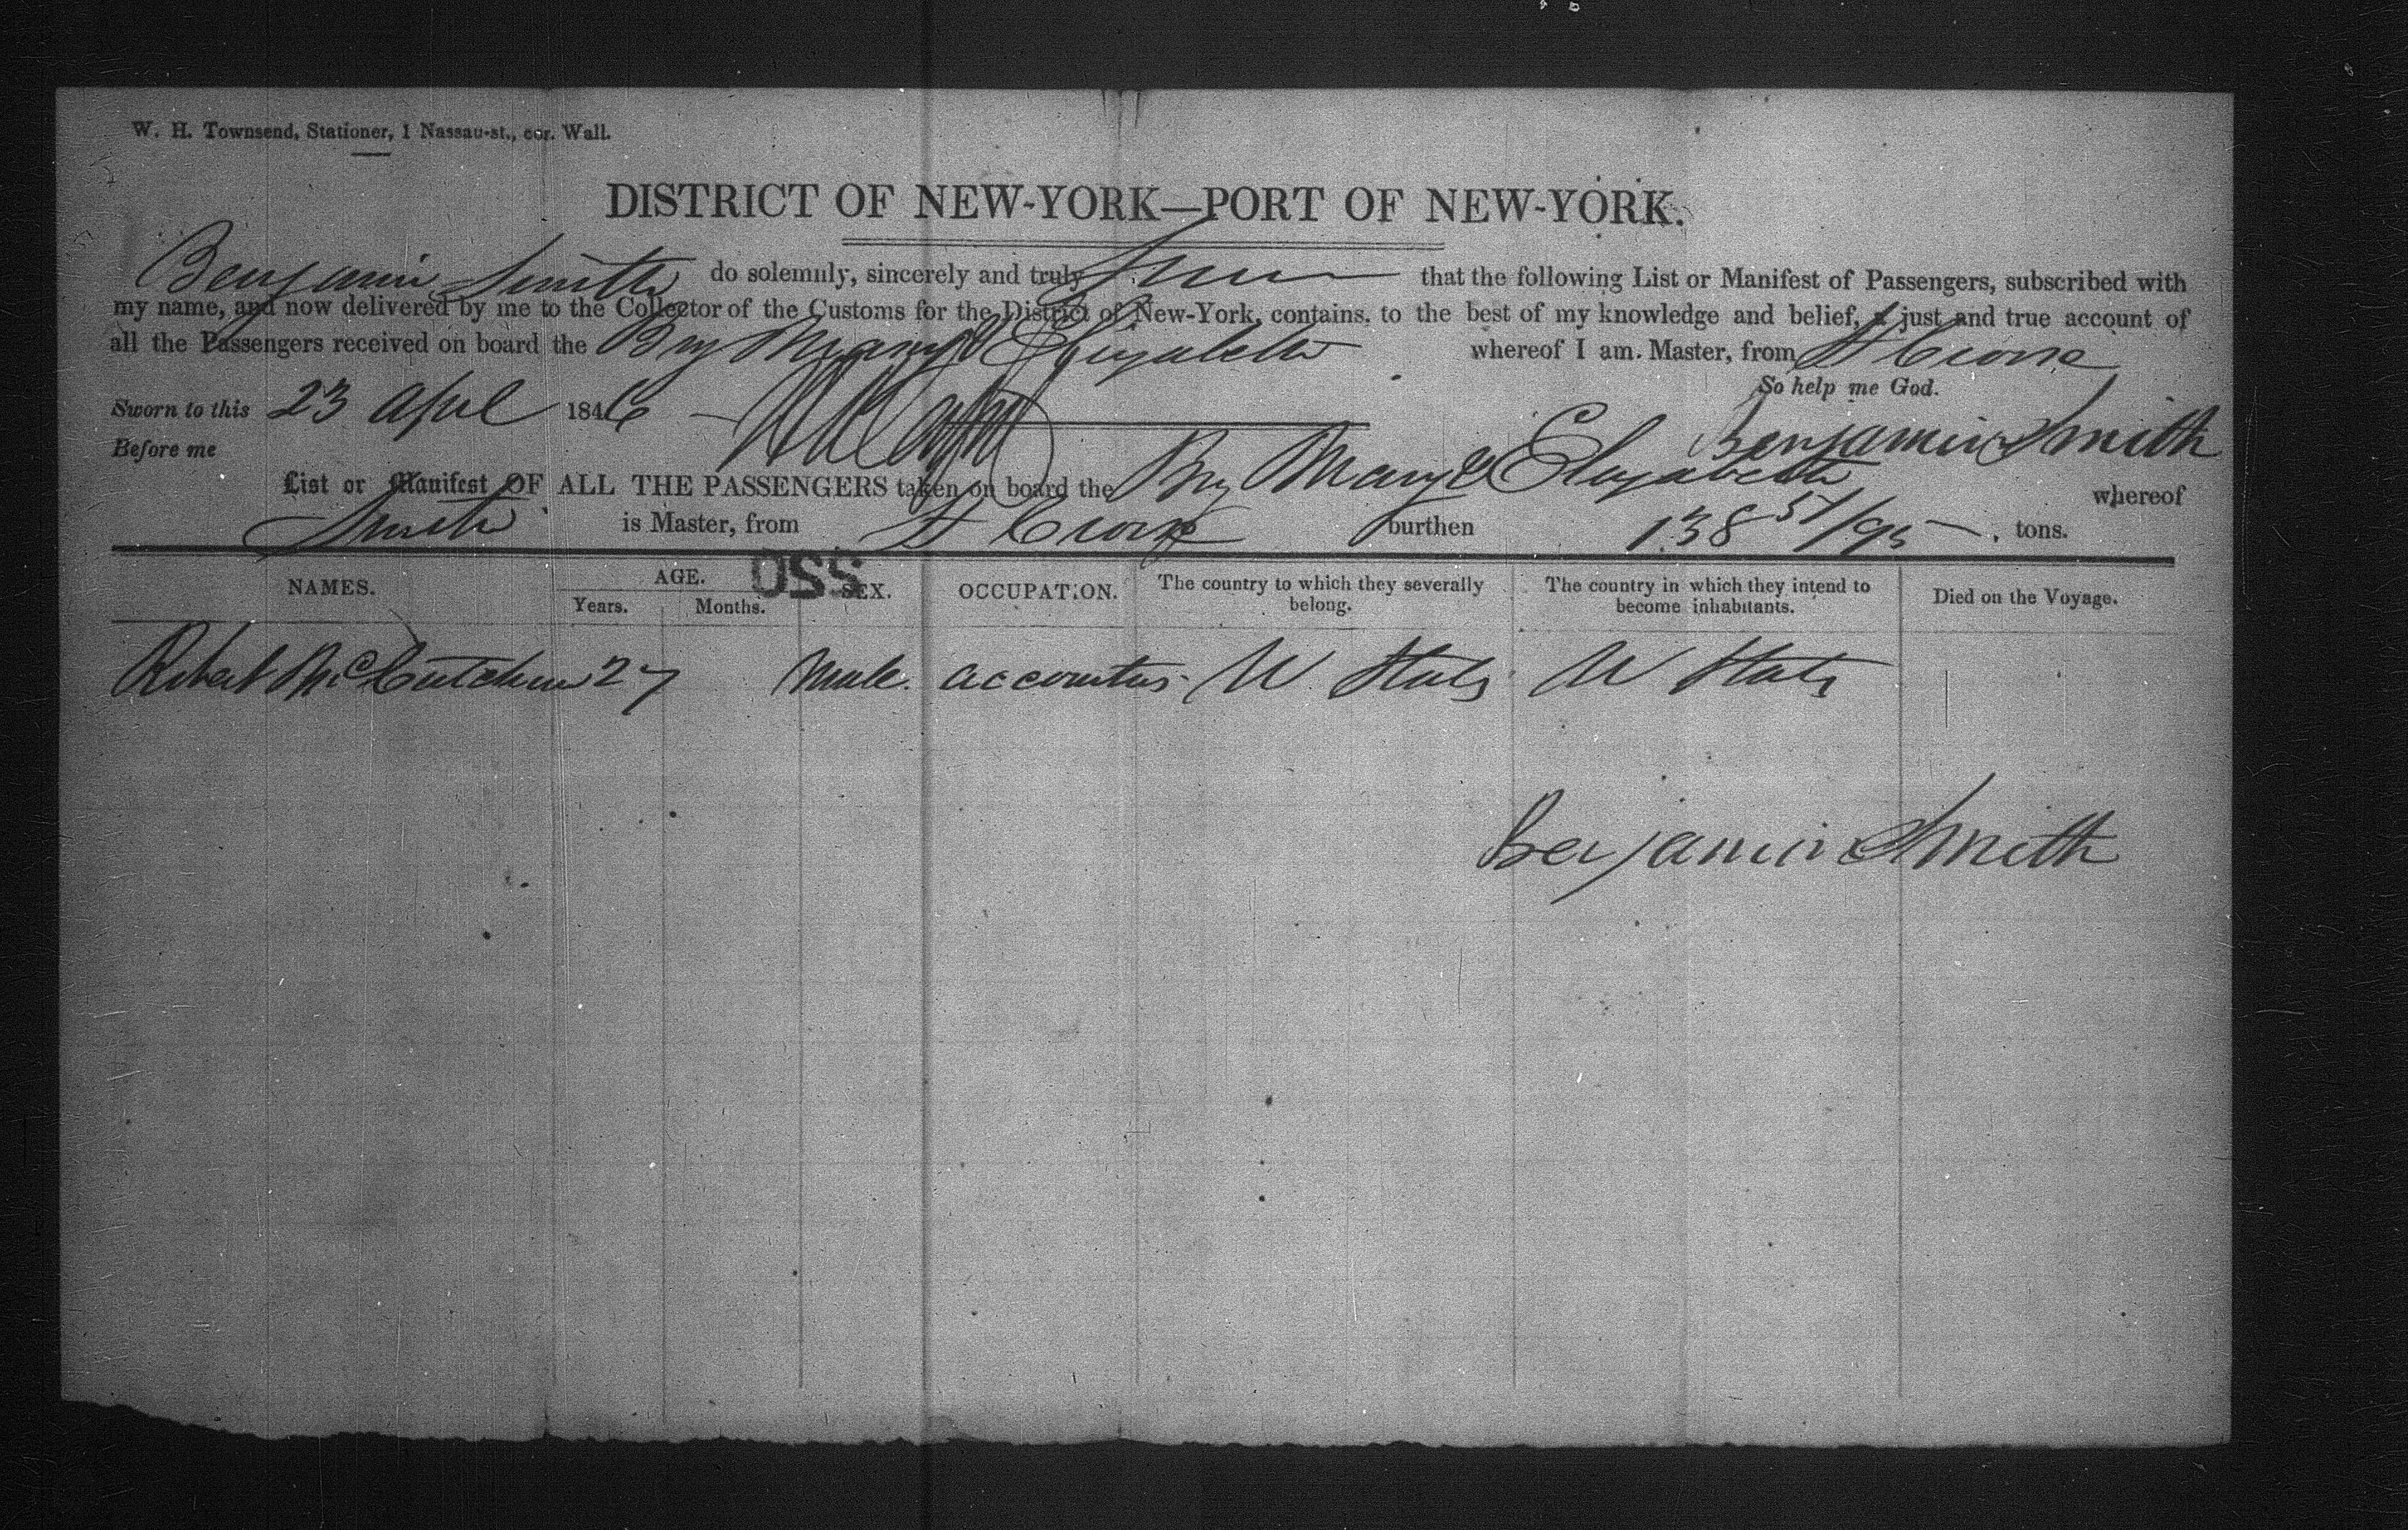 W. H. Townsend, Stationer, 1 Nassau-st., cor. Wall.
DISTRICT OF NEW-YORK—PORT OF NEW-YORK.
Benjamin Smith do solemnly, sincerely and truly that the following List or Manifest of Passengers, subscribed with
my name, and now delivered by me to the Collector of the Customs for the District of New-York, contains, to the best of my knowledge and belief, a just and true account of
all the Passengers received on board the Brig Mary & Elizabeth whereof I am Master, from St Croix
So help me God.
Sworn to this 23 April 1846
Benjamin Smith
Before me
List or Manifest OF ALL THE PASSENGERS taken on board the Brig Mary & Elizabeth whereof
Smith is Master, from St Croix burthen 138 51/95 tons.
NAMES. AGE. SEX. OCCUPATION. The country to which they severally belong. The country in which they intend to become inhabitants. Died on the Voyage.
Years. Months.
550
Robert McCutchen 27 Male. U States U States
Benjamin Smith